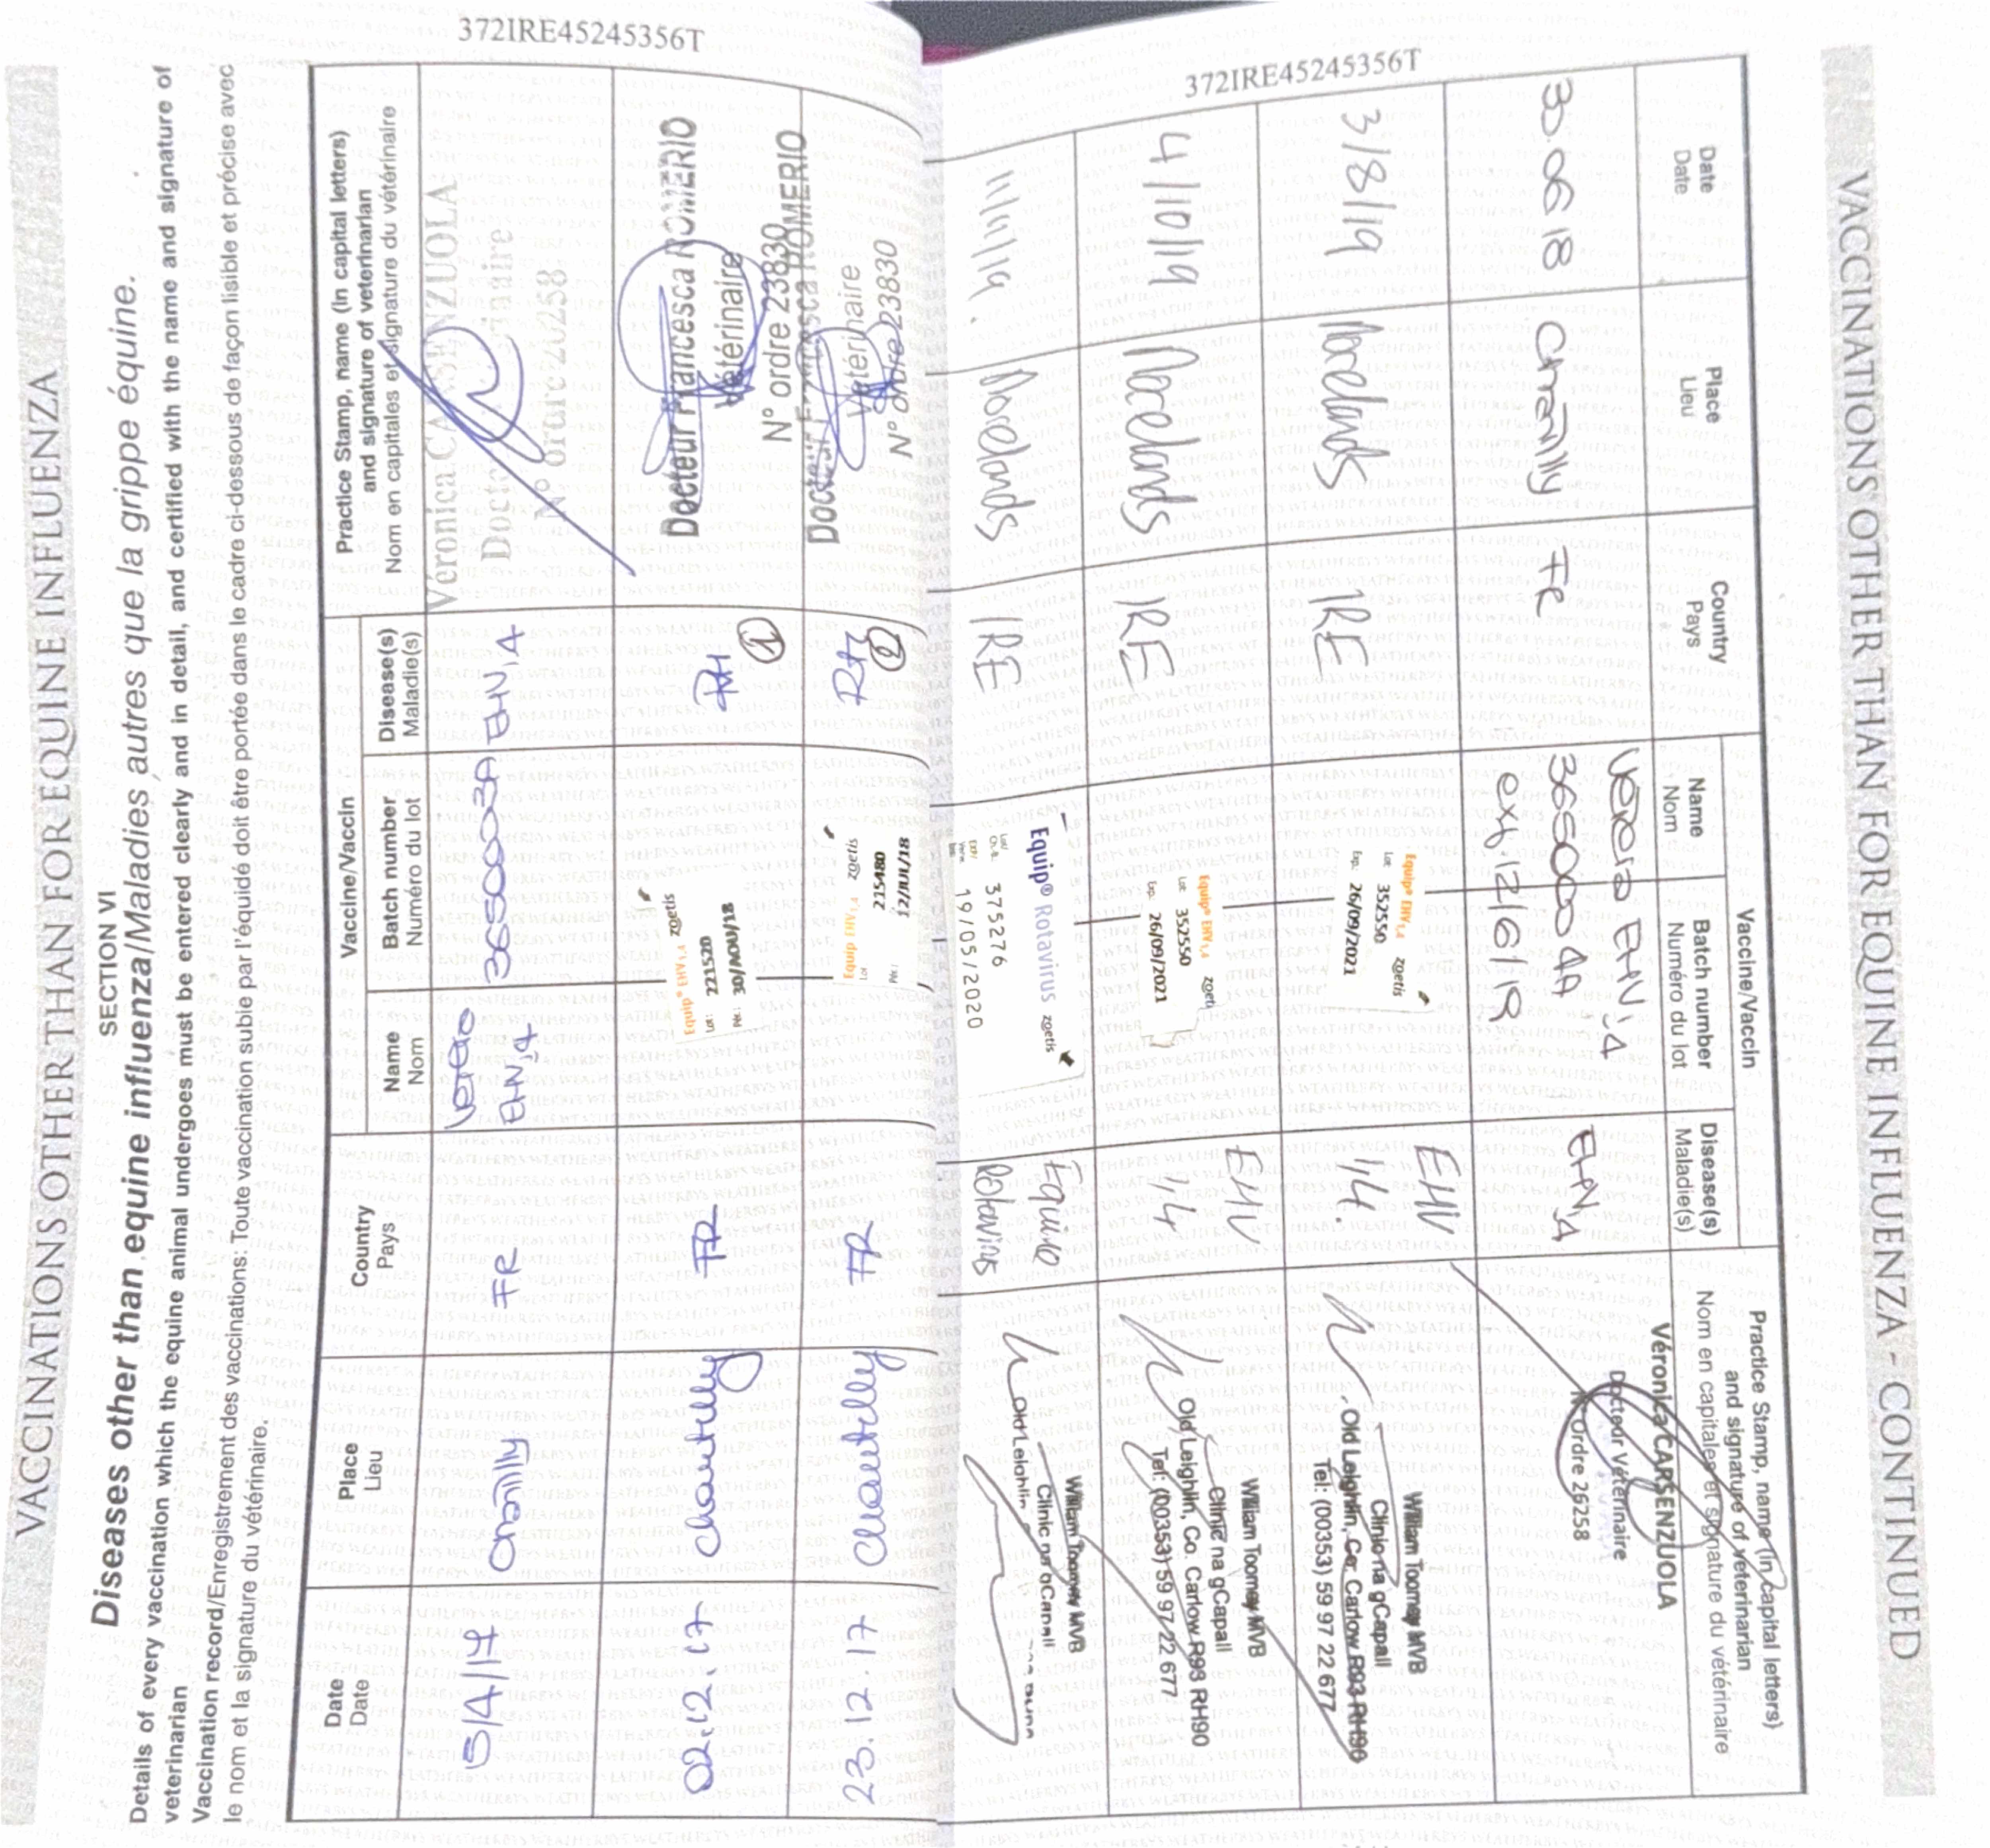 VACCINATIONS OTHER THAN FOR EQUINE INFLUENZA
SECTION VI
Diseases other than equine influenza/Maladies autres que la grippe équine.
Details of every vaccination which the equine animal undergoes must be entered clearly and in detail, and certified with the name and signature of
veterinarian
Vaccination record/Enregistrement des vaccinations: Toute vaccination subie par l'équidé doit être portée dans le cadre ci-dessous de façon lisible et précise avec
le nom et la signature du vétérinaire.
Date
Date
Place
Lieu
Country
Pays
Vaccine/Vaccin
Name
Nom
Batch number
Numéro du lot
Disease(s)
Maladie(s)
Practice Stamp, name (in capital letters)
and signature of veterinarian
Nom en capitales et signature du vétérinaire
5/4/17
Chantilly
FR
3650003A
Véronica CARSENZUOLA
N° ordre 26258
02.12.17
Chantilly
FR
Equip® EHV1,4 zoetis
Lot: 221520
30/AOU/18
①
Docteur Francesca ROMERIO
Vétérinaire
N° ordre 23830
23.12.17
Chantilly
FR
Equip EHV1,4 zoetis
Lot 215480
12/JUL/18
②
Docteur Francesca ROMERIO
Vétérinaire
N° ordre 23830
372IRE45245356T
VACCINATIONS OTHER THAN FOR EQUINE INFLUENZA - CONTINUED
Date
Date
Place
Lieu
Country
Pays
Vaccine/Vaccin
Name
Nom
Batch number
Numéro du lot
Disease(s)
Maladie(s)
Practice Stamp, name (in capital letters)
and signature of veterinarian
Nom en capitales et signature du vétérinaire
30.06.18
Chantilly
FR
3650004A
exp. 12/6/19
Véronica CARSENZUOLA
Docteur Vétérinaire
N° Ordre 26258
3/8/19
Morelands
IRE
Equip® EHV1,4 zoetis
Lot: 352550
Exp.: 26/09/2021
EHV
1/4.
William Toomey MVB
Clinic na gCapall
Old Leighlin, Co. Carlow R93 RH90
Tel: (00353) 59 97 22 677
4/10/19
Morelands
IRE
Equip® EHV1,4 zoeti
Lot: 352550
Exp.: 26/09/2021
EHV
1/4
William Toomey MVB
Clinic na gCapall
Old Leighlin, Co. Carlow R93 RH90
Tel: (00353) 59 97 22 677
11/11/19.
Morelands
IRE
Equip® Rotavirus zoetis
Lot/
Ch.-B. 375276
EXP/
19/05/2020
Equine
Rotavirus
William Toomey MVB
Clinic na gCapall
Old Leighlin
372IRE45245356T